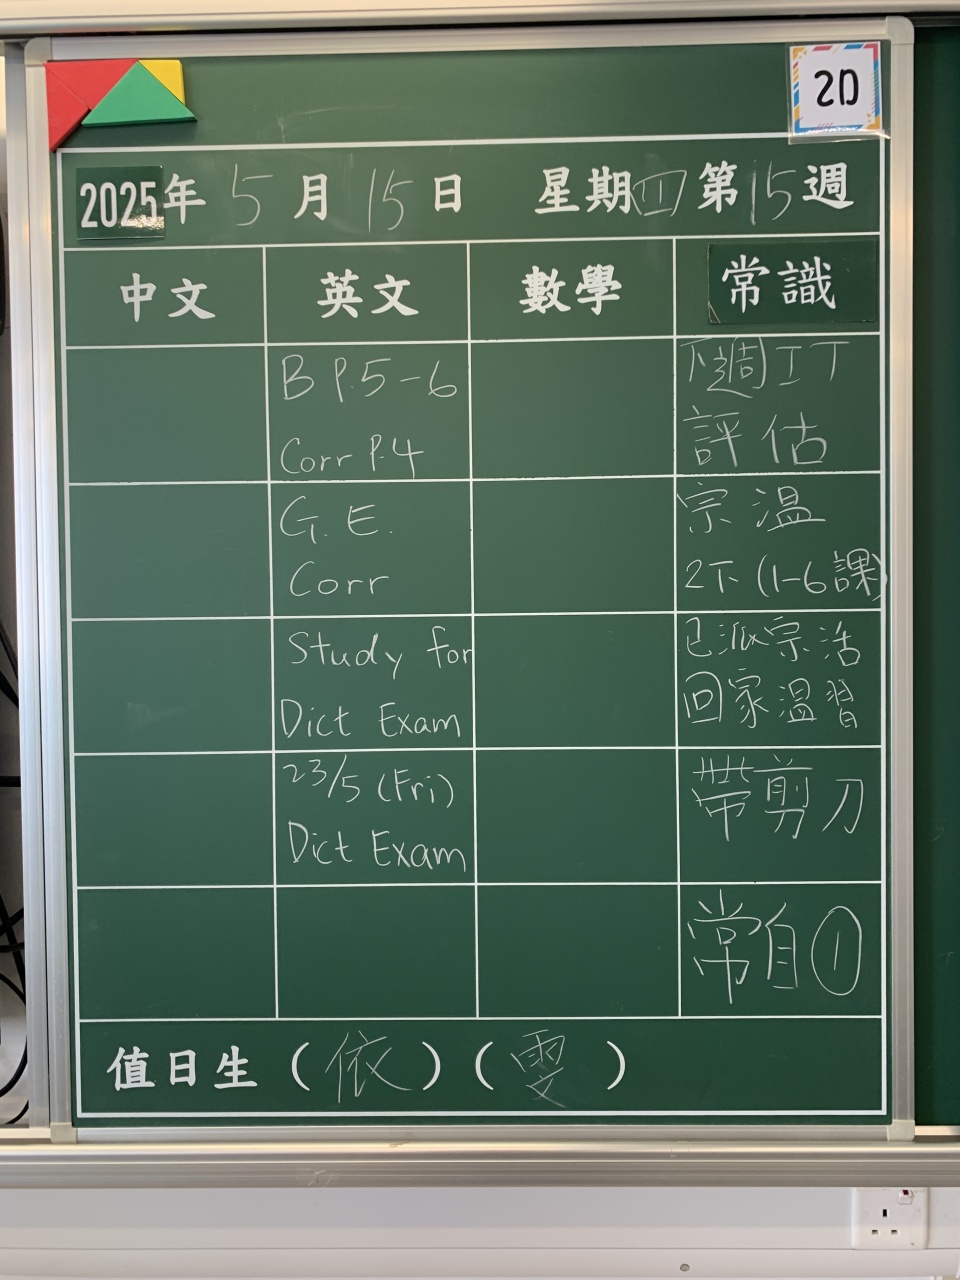 2D
2025年 5 月 15 日 星期四 第 15 週
中文 英文 數學 常識
B P.5-6
Corr P.4
G.E.
Corr
Study for
Dict Exam
23/5 (Fri)
Dict Exam
下週IT
評估
宗溫
2下 (1-6課)
已派宗活
回家溫習
帶剪刀
常自①
值日生 ( 依 ) ( 雯 )